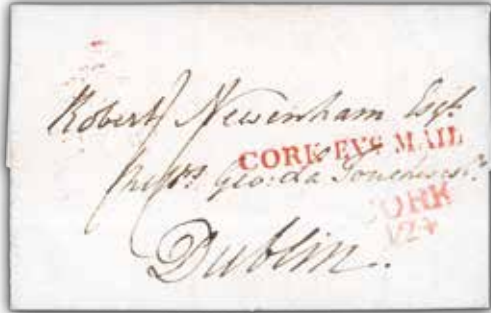 Robert Newenham Esqr.
CORK EVG MAIL
Messrs. George
CORK
124
Dublin.